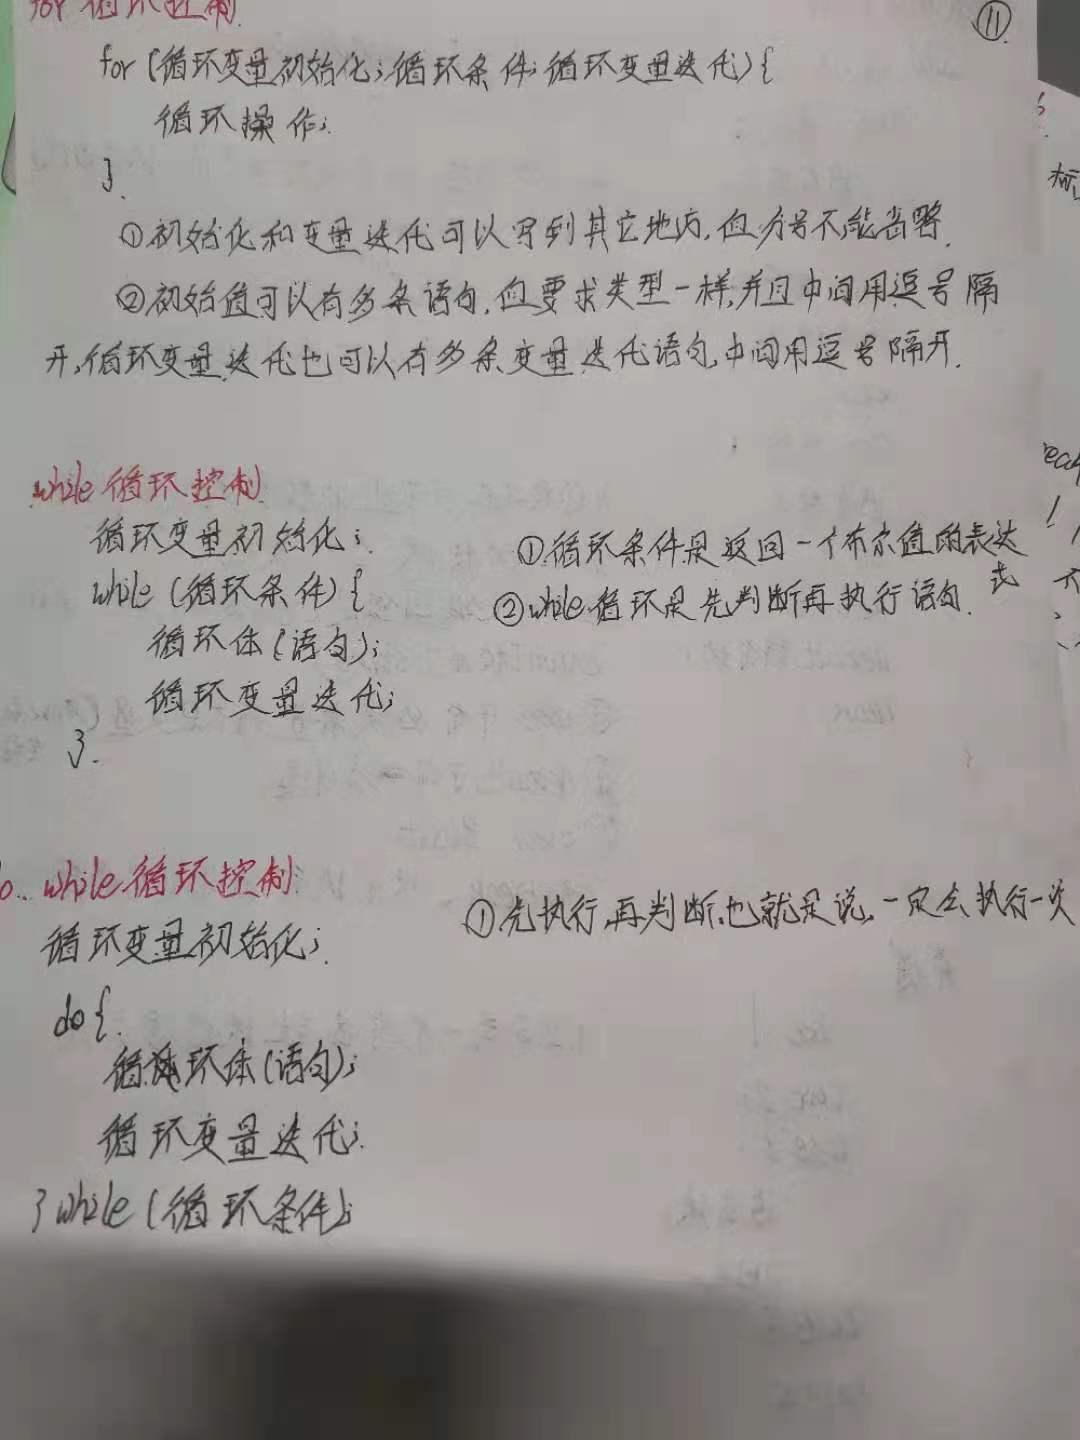 for 循环控制
⑪
for (循环变量初始化;循环条件;循环变量迭代){
循环操作;
}
①初始化和变量迭代可以写到其它地方,但分号不能省略.
②初始值可以有多条语句,但要求类型一样,并且中间用逗号隔
开,循环变量迭代也可以有多条变量迭代语句,中间用逗号隔开.
while循环控制
循环变量初始化;
while (循环条件){
循环体(语句);
循环变量迭代;
}
①循环条件是返回一个布尔值的表达
式
②while循环是先判断再执行语句.
o..while循环控制
循环变量初始化;
do{
循环体(语句);
循环变量迭代;
}while(循环条件);
①先执行,再判断,也就是说,一定会执行一次